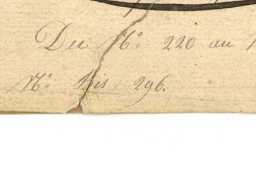 Du N.º 220 au
N.º bis 296.